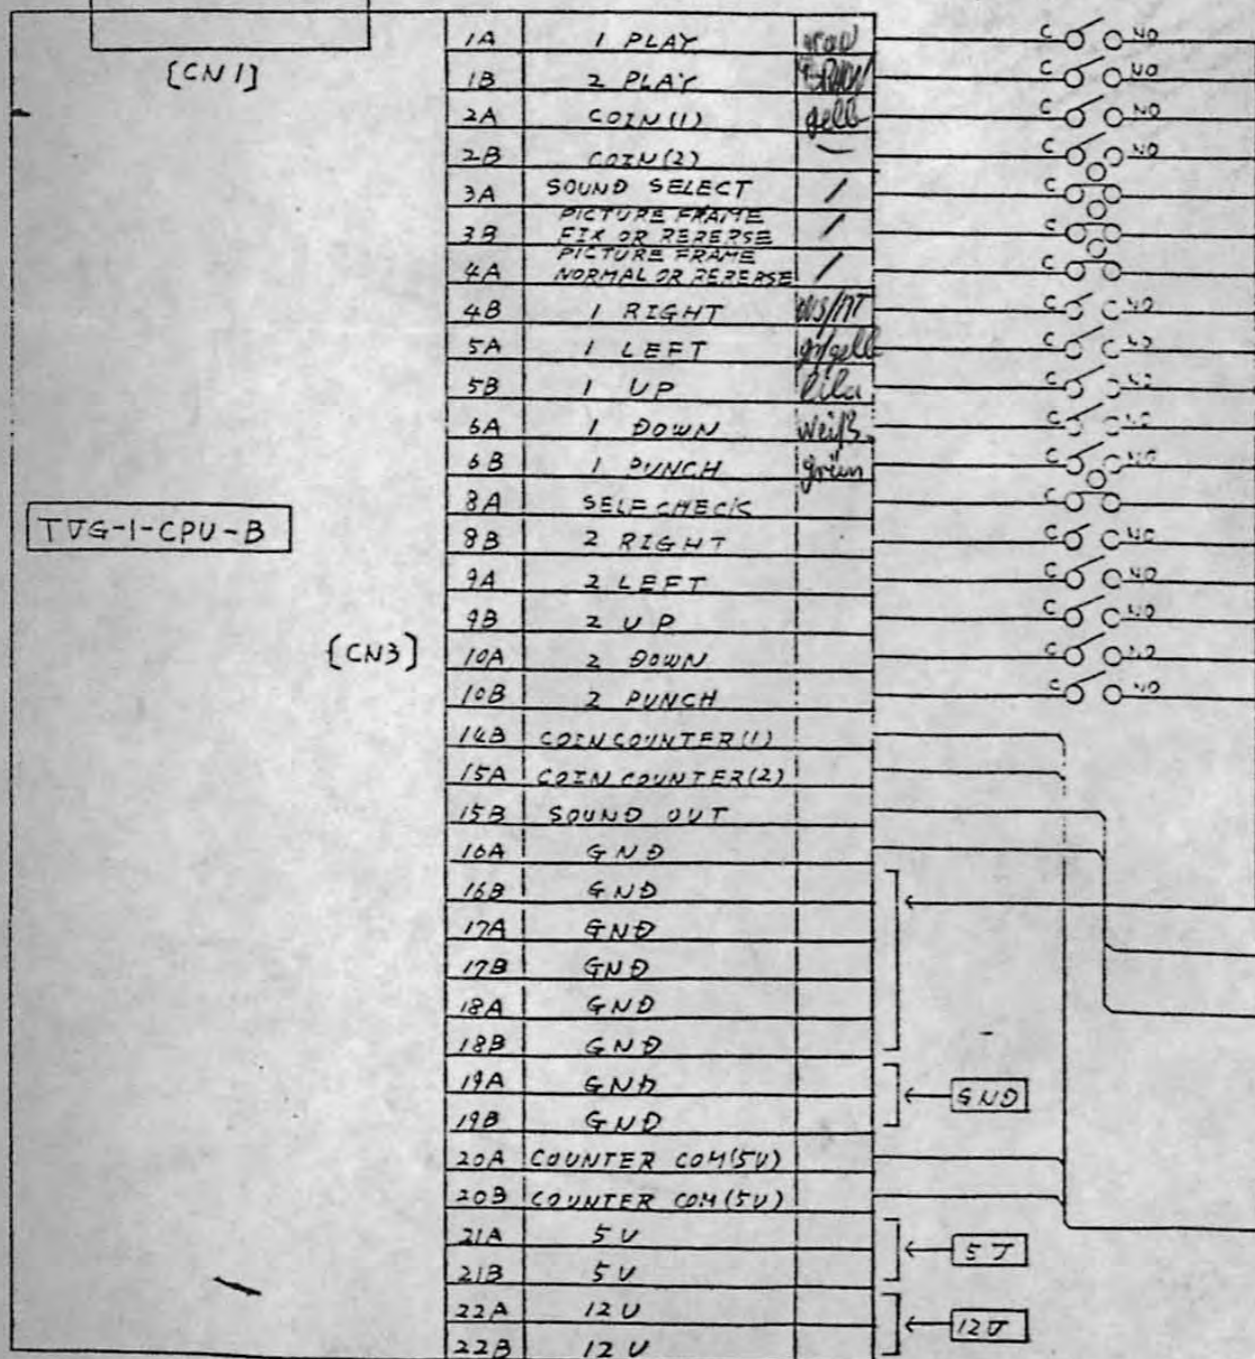 [CN1]
1A 1 PLAY grau C NO
1B 2 PLAY C NO
2A COIN(1) gelb C NO
2B COIN(2) — C NO
3A SOUND SELECT / C
PICTURE FRAME
3B FIX OR RERERSE / C
PICTURE FRAME
4A NORMAL OR RERERSE / C
4B 1 RIGHT C NO
5A 1 LEFT gr/gelb C NO
5B 1 UP lila C NO
6A 1 DOWN weiß C NO
6B 1 PUNCH grün C NO
8A SELF CHECK C
TVG-1-CPU-B
8B 2 RIGHT C NO
9A 2 LEFT C NO
9B 2 UP C NO
[CN3]
10A 2 DOWN C NO
10B 2 PUNCH C NO
14B COIN COUNTER(1)
15A COIN COUNTER(2)
15B SOUND OUT
16A GND
16B GND
17A GND
17B GND
18A GND
18B GND
19A GND
GND
19B GND
20A COUNTER COM(5V)
20B COUNTER COM(5V)
21A 5V
5V
21B 5V
22A 12V
12V
22B 12V